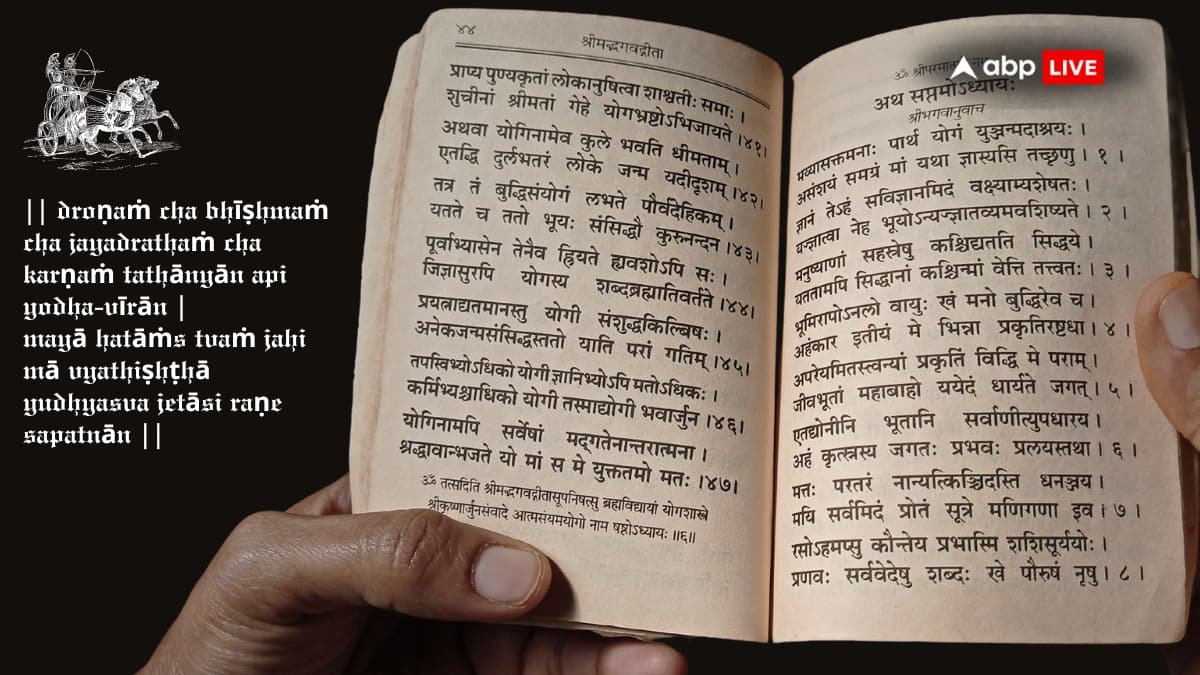 || droṇaṁ cha bhīṣhmaṁ
cha jayadrathaṁ cha
karṇaṁ tathānyān api
yodha-vīrān |
mayā hatāṁs tvaṁ jahi
mā vyathiṣhṭhā
yudhyasva jetāsi raṇe
sapatnān ||
४४
श्रीमद्भगवद्गीता
प्राप्य पुण्यकृतां लोकानुषित्वा शाश्वतीः समाः ।
शुचीनां श्रीमतां गेहे योगभ्रष्टोऽभिजायते ।४१।
अथवा योगिनामेव कुले भवति धीमताम् ।
एतद्धि दुर्लभतरं लोके जन्म यदीदृशम् ।४२।
तत्र तं बुद्धिसंयोगं लभते पौर्वदेहिकम् ।
यतते च ततो भूयः संसिद्धौ कुरुनन्दन ।४३।
पूर्वाभ्यासेन तेनैव ह्रियते ह्यवशोऽपि सः ।
जिज्ञासुरपि योगस्य शब्दब्रह्मातिवर्तते ।४४।
प्रयत्नाद्यतमानस्तु योगी संशुद्धकिल्बिषः ।
अनेकजन्मसंसिद्धस्ततो याति परां गतिम् ।४५।
तपस्विभ्योऽधिको योगी ज्ञानिभ्योऽपि मतोऽधिकः ।
कर्मिभ्यश्चाधिको योगी तस्माद्योगी भवार्जुन ।४६।
योगिनामपि सर्वेषां मद्गतेनान्तरात्मना ।
श्रद्धावान्भजते यो मां स मे युक्ततमो मतः ।४७।
ॐ तत्सदिति श्रीमद्भगवद्गीतासूपनिषत्सु ब्रह्मविद्यायां योगशास्त्रे
श्रीकृष्णार्जुनसंवादे आत्मसंयमयोगो नाम षष्ठोऽध्यायः ॥६॥
abp LIVE
ॐ श्रीपरमा
अथ सप्तमोऽध्यायः
श्रीभगवानुवाच
मय्यासक्तमनाः पार्थ योगं युञ्जन्मदाश्रयः ।
असंशयं समग्रं मां यथा ज्ञास्यसि तच्छृणु । १ ।
ज्ञानं तेऽहं सविज्ञानमिदं वक्ष्याम्यशेषतः ।
यज्ज्ञात्वा नेह भूयोऽन्यज्ज्ञातव्यमवशिष्यते । २ ।
मनुष्याणां सहस्रेषु कश्चिद्यतति सिद्धये ।
यततामपि सिद्धानां कश्चिन्मां वेत्ति तत्त्वतः । ३ ।
भूमिरापोऽनलो वायुः खं मनो बुद्धिरेव च ।
अहंकार इतीयं मे भिन्ना प्रकृतिरष्टधा । ४ ।
अपरेयमितस्त्वन्यां प्रकृतिं विद्धि मे पराम् ।
जीवभूतां महाबाहो ययेदं धार्यते जगत् । ५ ।
एतद्योनीनि भूतानि सर्वाणीत्युपधारय ।
अहं कृत्स्नस्य जगतः प्रभवः प्रलयस्तथा । ६ ।
मत्तः परतरं नान्यत्किञ्चिदस्ति धनञ्जय ।
मयि सर्वमिदं प्रोतं सूत्रे मणिगणा इव । ७ ।
रसोऽहमप्सु कौन्तेय प्रभास्मि शशिसूर्ययोः ।
प्रणवः सर्ववेदेषु शब्दः खे पौरुषं नृषु । ८ ।